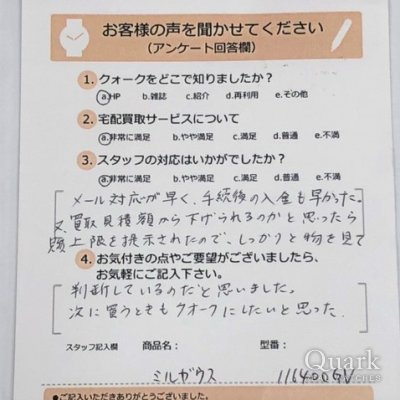 お客様の声を聞かせてください
(アンケート回答欄)
1. クォークをどこで知りましたか?
a.HP b.雑誌 c.紹介 d.再利用 e.その他
2. 宅配買取サービスについて
a.非常に満足 b.やや満足 c.満足 d.普通 e.不満
3. スタッフの対応はいかがでしたか?
a.非常に満足 b.やや満足 c.満足 d.普通 e.不満
メール対応が早く、手続後の入金も早かった。
又、買取見積額から下げられるのかと思ったら
上限を提示されたので、しっかりと物を見て
4. お気付きの点やご要望がございましたら、
お気軽にご記入下さい。
判断しているのだと思いました。
次に買うときもクオークにしたいと思った。
スタッフ記入欄 商品名: 型番:
ミルガウス 116400GV
Quark
WATCHES
●ご記入いただきありがとうございました。